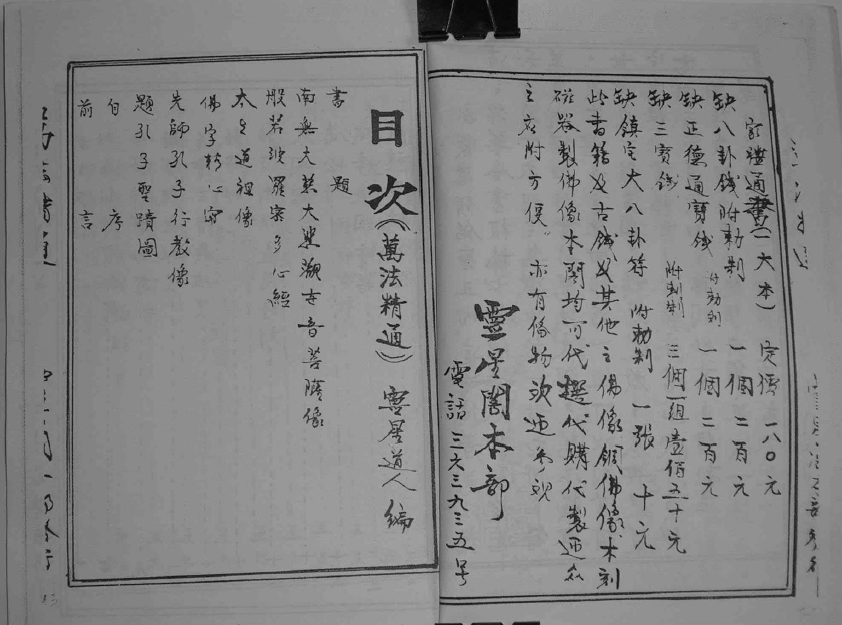 家禮通書(一大本) 定價 一八〇元
缺八卦錢附勅制 一個二百元
缺正德通寶錢 附勅制 一個二百元
缺三寶錢 附勅制 三個一組壹佰五十元
缺鎮宅大八卦符 附勅制 一張 十元
此書籍及古錢及其他之佛像銅佛像木刻
磁器製佛像本閣均可代撰代購代製迎眾
之衣附方便 亦有係物歡迎參觀
靈星閣本部
電話 三六三九三五號
目次(萬法精通) 靈星道人編
書題
南無大慈大悲觀世音菩薩像
般若波羅密多心經
太上道祖像
佛字
先師孔子行教像
題孔子聖蹟圖
自序
前言